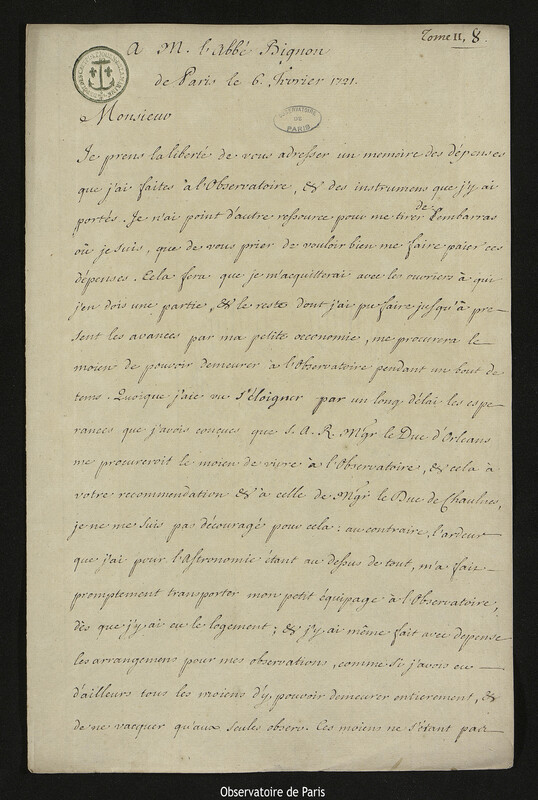 Tome II, 8.
A M. l'Abbé Bignon
de Paris le 6. Fevrier 1721.
Monsieur
OBSERVATOIRE
DE
PARIS
Je prens la liberté de vous adresser un memoire des dépenses
que j'ai faites à l'Observatoire, & des instrumens que j'y ai
portés. Je n'ai point d'autre ressource pour me tirer de l'embarras
où je suis, que de vous prier de vouloir bien me faire paier ces
dépenses. Cela fera que je m'acquitterai avec les ouvriers à qui
j'en dois une partie, & le reste dont j'ai pu faire jusqu'à pre-
sent les avances par ma petite oeconomie, me procurera le
moien de pouvoir demeurer à l'Observatoire pendant un bout de
tems. Quoique j'aie vu s'éloigner par un long délai les espe-
rances que j'avois conçues que S. A. R. Mgr le Duc d'Orleans
me procureroit le moien de vivre à l'Observatoire, & cela à
votre recommendation & à celle de Mgr le Duc de Chaulnes,
je ne me suis pas découragé pour cela: au contraire, l'ardeur
que j'ai pour l'Astronomie étant au dessus de tout, m'a fait
promptement transporter mon petit équipage à l'Observatoire,
dès que j'y ai eu le logement; & j'y ai même fait avec depense
les arrangemens pour mes observations, comme si j'avois eu
d'ailleurs tous les moiens d'y pouvoir demeurer entierement, &
de ne vacquer qu'aux seules observ. Ces moiens ne s'étant pas
Observatoire de Paris